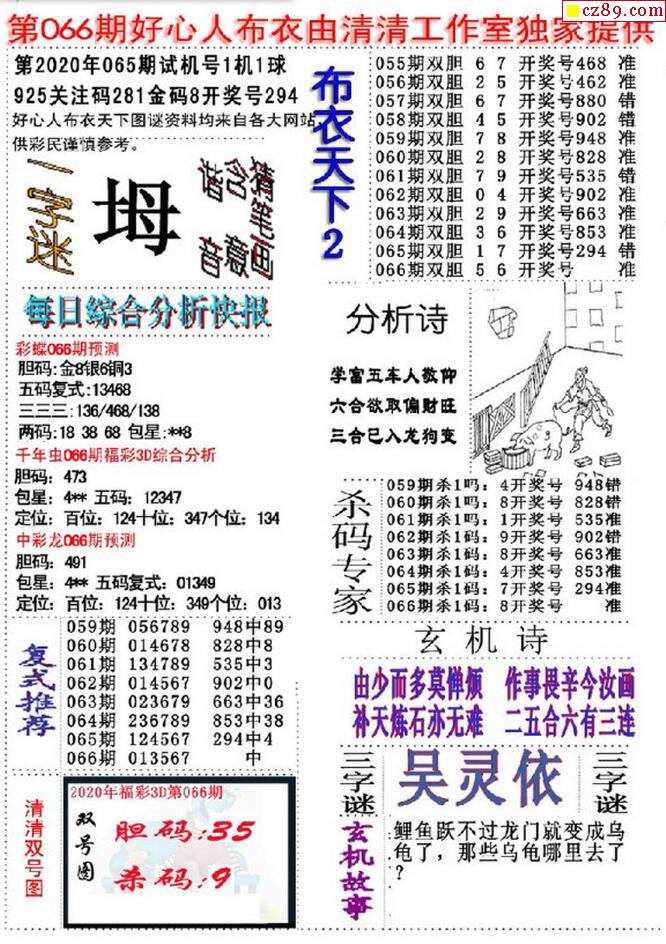 cz89.com
第066期好心人布衣由清清工作室独家提供
第2020年065期试机号1机1球
925关注码281金码8开奖号294
好心人布衣天下图谜资料均来自各大网站
供彩民谨慎参考。
一字谜
坶
谐音
含意
猜笔画
每日综合分析快报
彩蝶066期预测
胆码:金8银6铜3
五码复式:13468
三三三:136/468/138
两码:18 38 68 包星:**8
千年虫066期福彩3D综合分析
胆码: 473
包星: 4** 五码: 12347
定位: 百位: 124十位: 347个位: 134
中彩龙066期预测
胆码: 491
包星: 4** 五码复式: 01349
定位: 百位: 124十位: 349个位: 013
复式推荐
059期 056789 948中89
060期 014678 828中8
061期 134789 535中3
062期 014567 902中0
063期 023679 663中36
064期 236789 853中38
065期 124567 294中4
066期 013567 中
清清双号图
2020年福彩3D第066期
双号图
胆码:35
杀码:9
布衣天下2
055期双胆 6 7 开奖号468 准
056期双胆 2 5 开奖号462 准
057期双胆 6 7 开奖号880 错
058期双胆 4 5 开奖号902 错
059期双胆 7 8 开奖号948 准
060期双胆 2 8 开奖号828 准
061期双胆 7 9 开奖号535 错
062期双胆 0 4 开奖号902 准
063期双胆 2 9 开奖号663 准
064期双胆 3 6 开奖号853 准
065期双胆 1 7 开奖号294 错
066期双胆 5 6 开奖号 准
分析诗
学富五车人敬仰
六合欲取偏财旺
三合已入龙狗变
杀码专家
059期杀1吗: 4开奖号 948错
060期杀1吗: 8开奖号 828错
061期杀1吗: 1开奖号 535准
062期杀1码: 9开奖号 902错
063期杀1码: 8开奖号 663准
064期杀1码: 4开奖号 853准
065期杀1码: 7开奖号 294准
066期杀1码: 8开奖号 准
玄机诗
由少而多莫惮烦 作事畏辛今汝画
补天炼石亦无难 二五合六有三连
三字谜
吴灵依
三字谜
玄机故事
鲤鱼跃不过龙门就变成乌
龟了，那些乌龟哪里去了
?